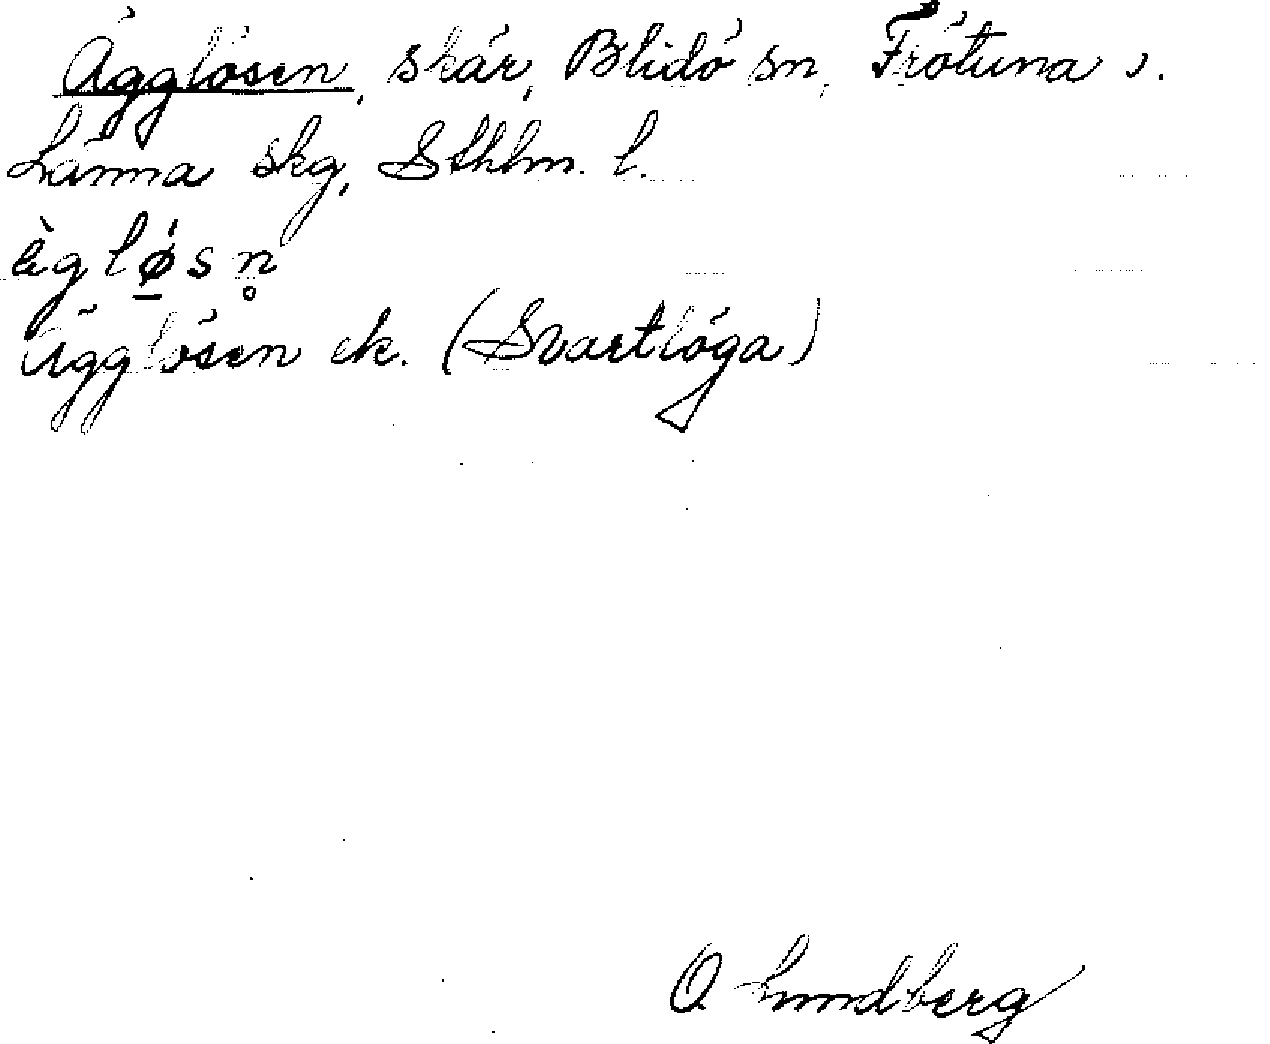 Ägglösen, skär, Blidö sn, Frötuna o.
Länna skg, Sthlm. l.
ègløsn̥
Ägglösen ek. (Svartlöga)
O Lundberg